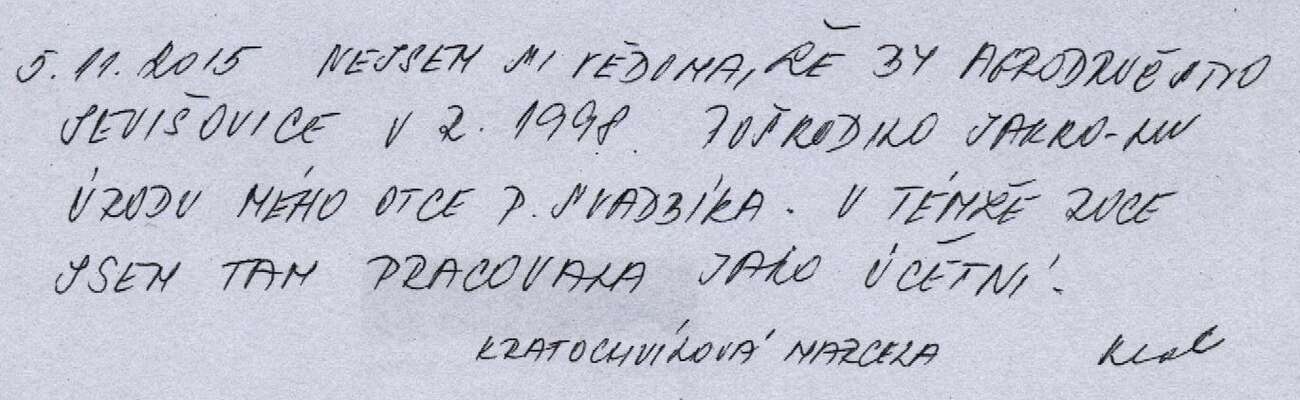 5.11.2015 NEJSEM SI VĚDOMA, ŽE BY AGRODRUŽSTVO
JEVIŠOVICE V R. 1998 POŠKODILO JAKKO-LIV
ÚRODU MÉHO OTCE P. SVADBÍKA. V TÉMŽE ROCE
JSEM TAM PRACOVALA JAKO ÚČETNÍ.
KRATOCHVÍLOVÁ MARCELA